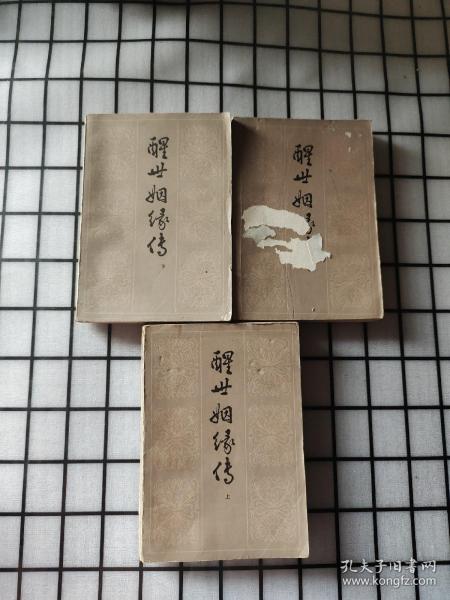 醒世姻缘传
下
醒世姻缘
醒世姻缘传
上
孔夫子旧书网
www.kongfz.com